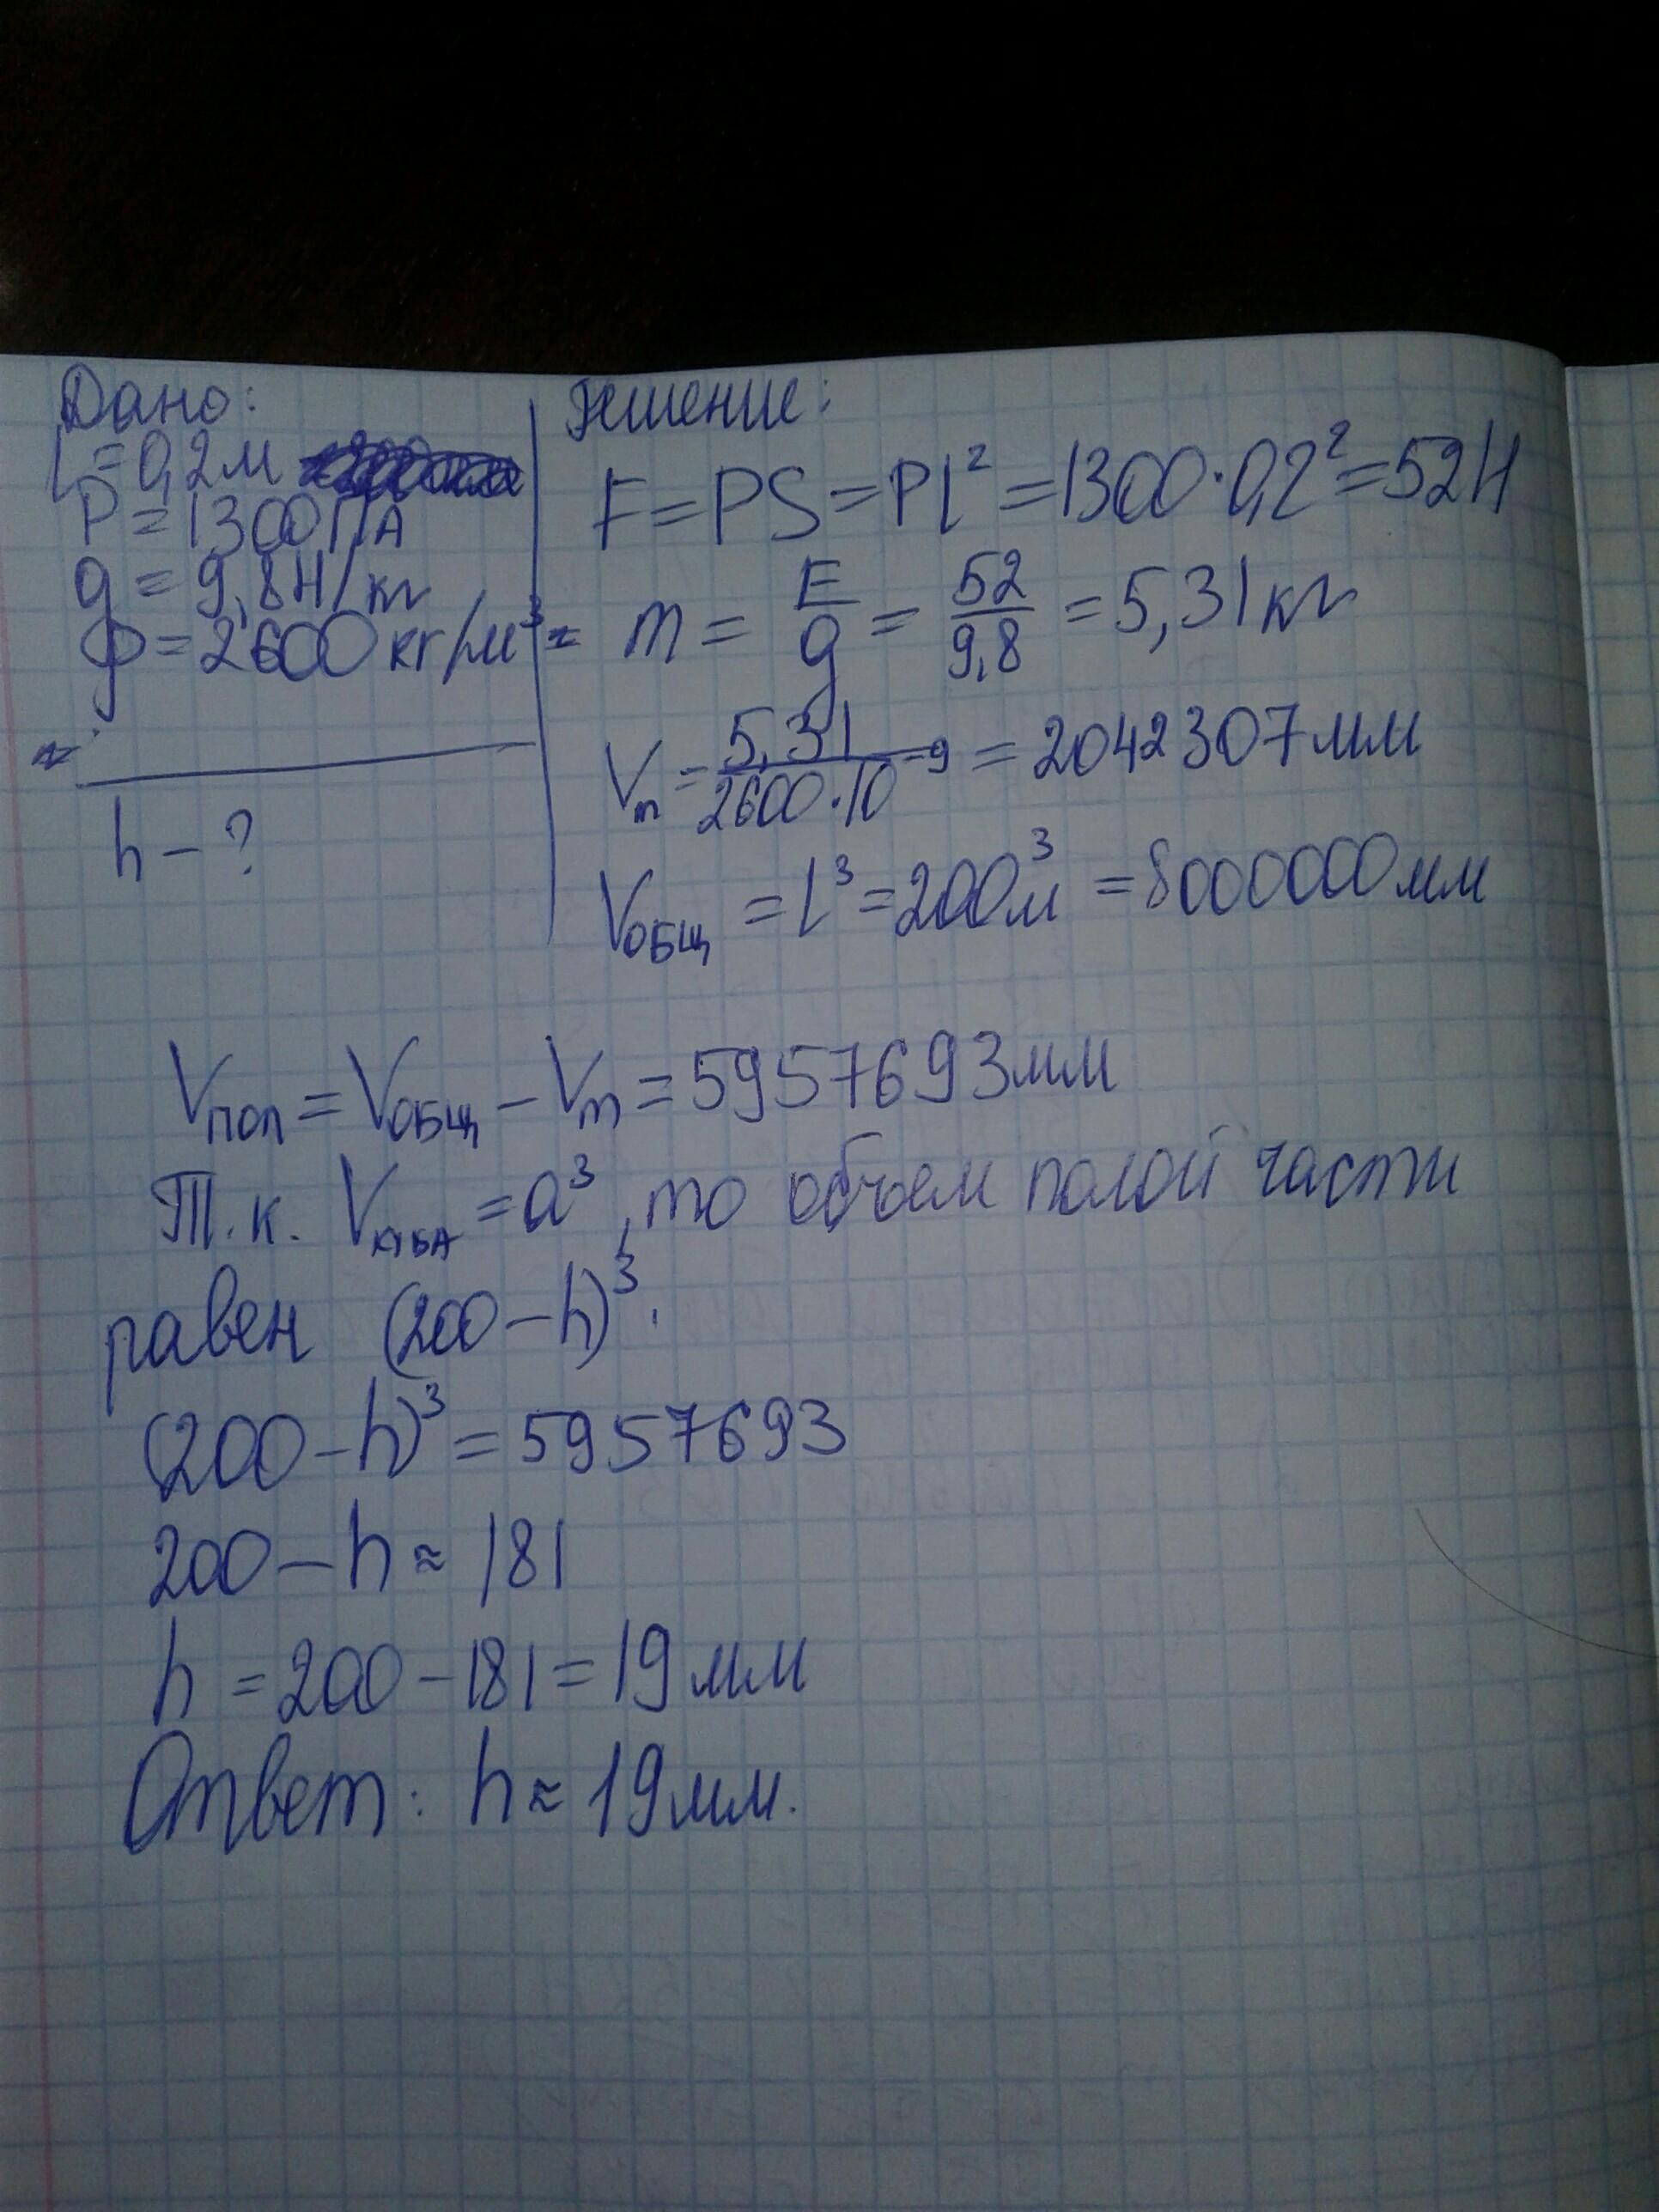 Дано:
L=0,2м
P=1300ПА
g=9,8Н/кг
ρ=2600кг/м³
h-?
Решение:
F=PS=Pl²=1300·0,2²=52Н
m=F/g=52/9,8=5,31кг
Vm=5,31/2600·10⁻⁹=2042307мм
Vобщ=l³=200м³=8000000мм
Vпол=Vобщ-Vm=5957693мм
Т.к. Vкуба=a³, то объем полой части
равен (200-h)³.
(200-h)³=5957693
200-h≈181
h=200-181=19мм
Ответ: h≈19мм.